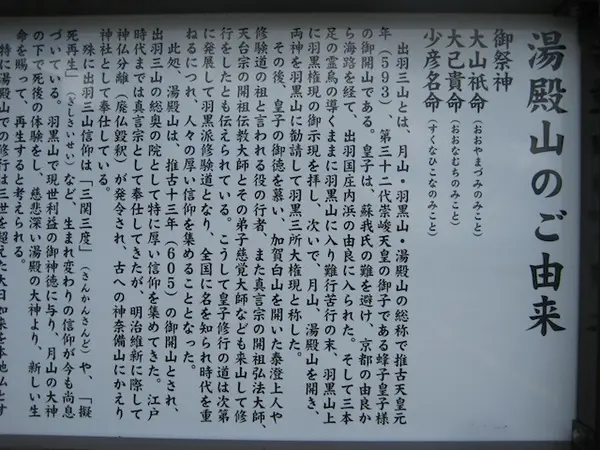 湯殿山のご由来
御祭神
大山祇命（おおやまづみのみこと）
大己貴命（おおなむちのみこと）
少彦名命（すくなひこなのみこと）
出羽三山とは、月山・羽黒山・湯殿山の総称で推古天皇元
年（593）、第三十二代崇峻天皇の御子である蜂子皇子様
の御開山である。皇子は、蘇我氏の難を避け、京都の由良か
ら海路を経て、出羽国庄内浜の由良に入られた。そして三本
足の霊烏の導くままに羽黒山に入り難行苦行の末、羽黒山上
に羽黒権現の御示現を拝し、次いで、月山、湯殿山を開き、
両神を羽黒山に勧請して羽黒三所大権現と称した。
その後、皇子の御徳を慕い、加賀白山を開いた泰澄上人や
修験道の祖と言われる役の行者、また真言宗の開祖弘法大師、
天台宗の開祖伝教大師とその弟子慈覚大師なども来山して修
行をしたとも伝えられている。こうして皇子修行の道は次第
に発展して羽黒派修験道となり、全国に名を知られ時代を重
ねるにつれ、人々の厚い信仰を集めることとなった。
此処、湯殿山は、推古十三年（605）の御開山とされ、
出羽三山の総奥の院として特に厚い信仰を集めてきた。江戸
時代までは真言宗として奉仕してきたが、明治維新に際して
神仏分離（廃仏毀釈）が発令され、古への神奈備山にかえり
神社として奉仕している。
殊に出羽三山信仰は「三関三度」（さんかんさんど）や、「擬
死再生」（ぎしさいせい）など、生まれ変わりの信仰が今も尚息
づいている。羽黒山で現世利益の御神徳に与り、月山の大神
の下で死後の体験をし、慈悲深い湯殿の大神より、新しい生
命を賜って、再生すると考えられる。
特に湯殿山での修行は三世を超えた大日如来を本地仏とす